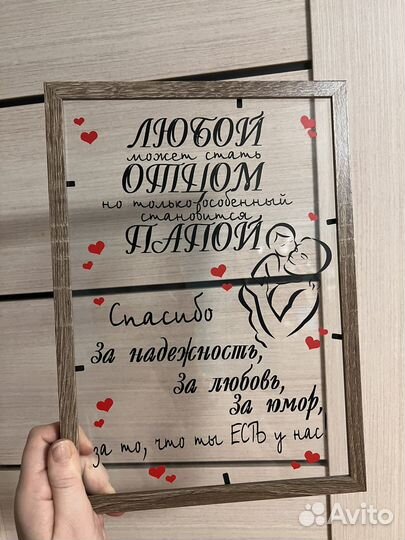 ЛЮБОЙ
может стать
ОТЦОМ
но только особенный
становится
ПАПОЙ
Спасибо
За надежность,
За любовь,
За юмор,
за то, что ты ЕСТЬ у нас
Avito